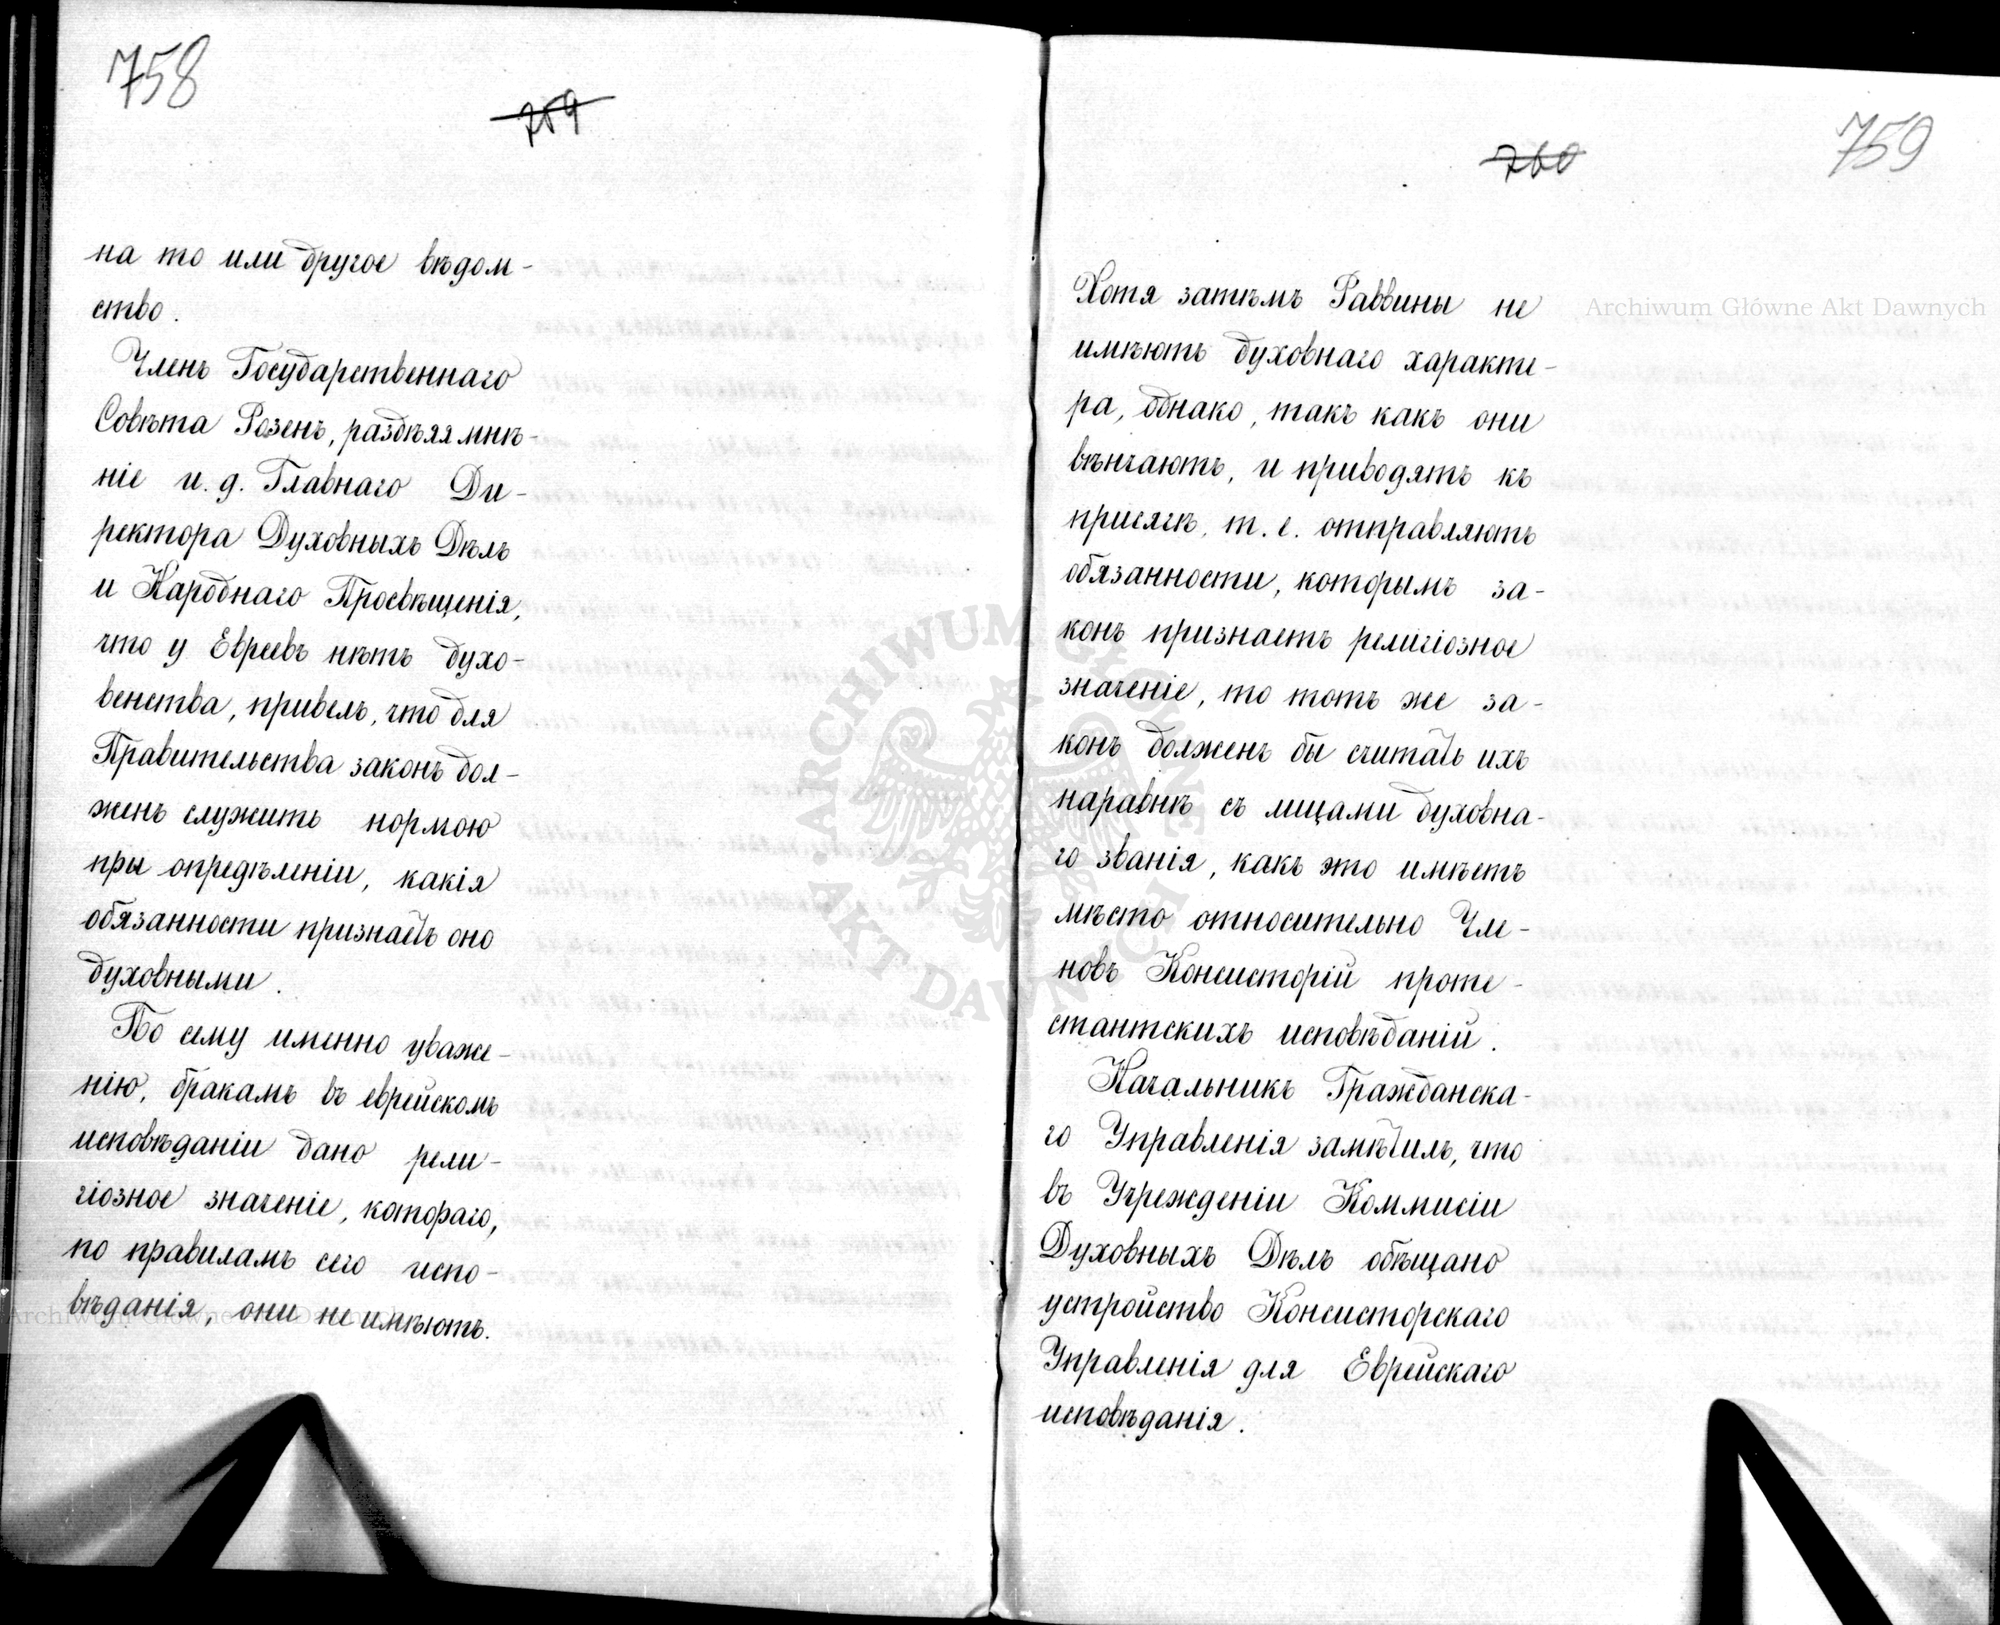 758
759
на то или другое вѣдом-
ство.
Членъ Государственнаго
Совѣта Розенъ, раздѣляя мнѣ-
ніе и. д. Главнаго Ди-
ректора Духовныхъ Дѣлъ
и Народнаго Просвѣщенія,
что у Евреевъ нѣтъ духо-
венства, привелъ, что для
Правительства законъ дол-
женъ служить нормою
при опредѣленіи, какія
обязанности признаетъ оно
духовными.
По сему именно уваже-
нію, бракамъ въ еврейскомъ
исповѣданіи дано рели-
гіозное значеніе, котораго,
по правиламъ сего испо-
вѣданія, они не имѣютъ.
760
759
Хотя затѣмъ Раввины не
имѣютъ духовнаго характе-
ра, однако, такъ какъ они
вѣнчаютъ, и приводятъ къ
присягѣ, т. е. отправляютъ
обязанности, которымъ за-
конъ признаетъ религіозное
значеніе, то тотъ же за-
конъ долженъ бы считать ихъ
наравнѣ съ лицами духовна-
го званія, какъ это имѣетъ
мѣсто относительно Чле-
новъ Консисторій проте-
стантскихъ исповѣданій.
Начальникъ Гражданска-
го Управленія замѣтилъ, что
въ Учрежденіи Коммисіи
Духовныхъ Дѣлъ обѣщано
устройство Консисторскаго
Управленія для Еврейскаго
исповѣданія.
Archiwum Główne Akt Dawnych
ARCHIWUM GŁÓWNE AKT DAWNYCH